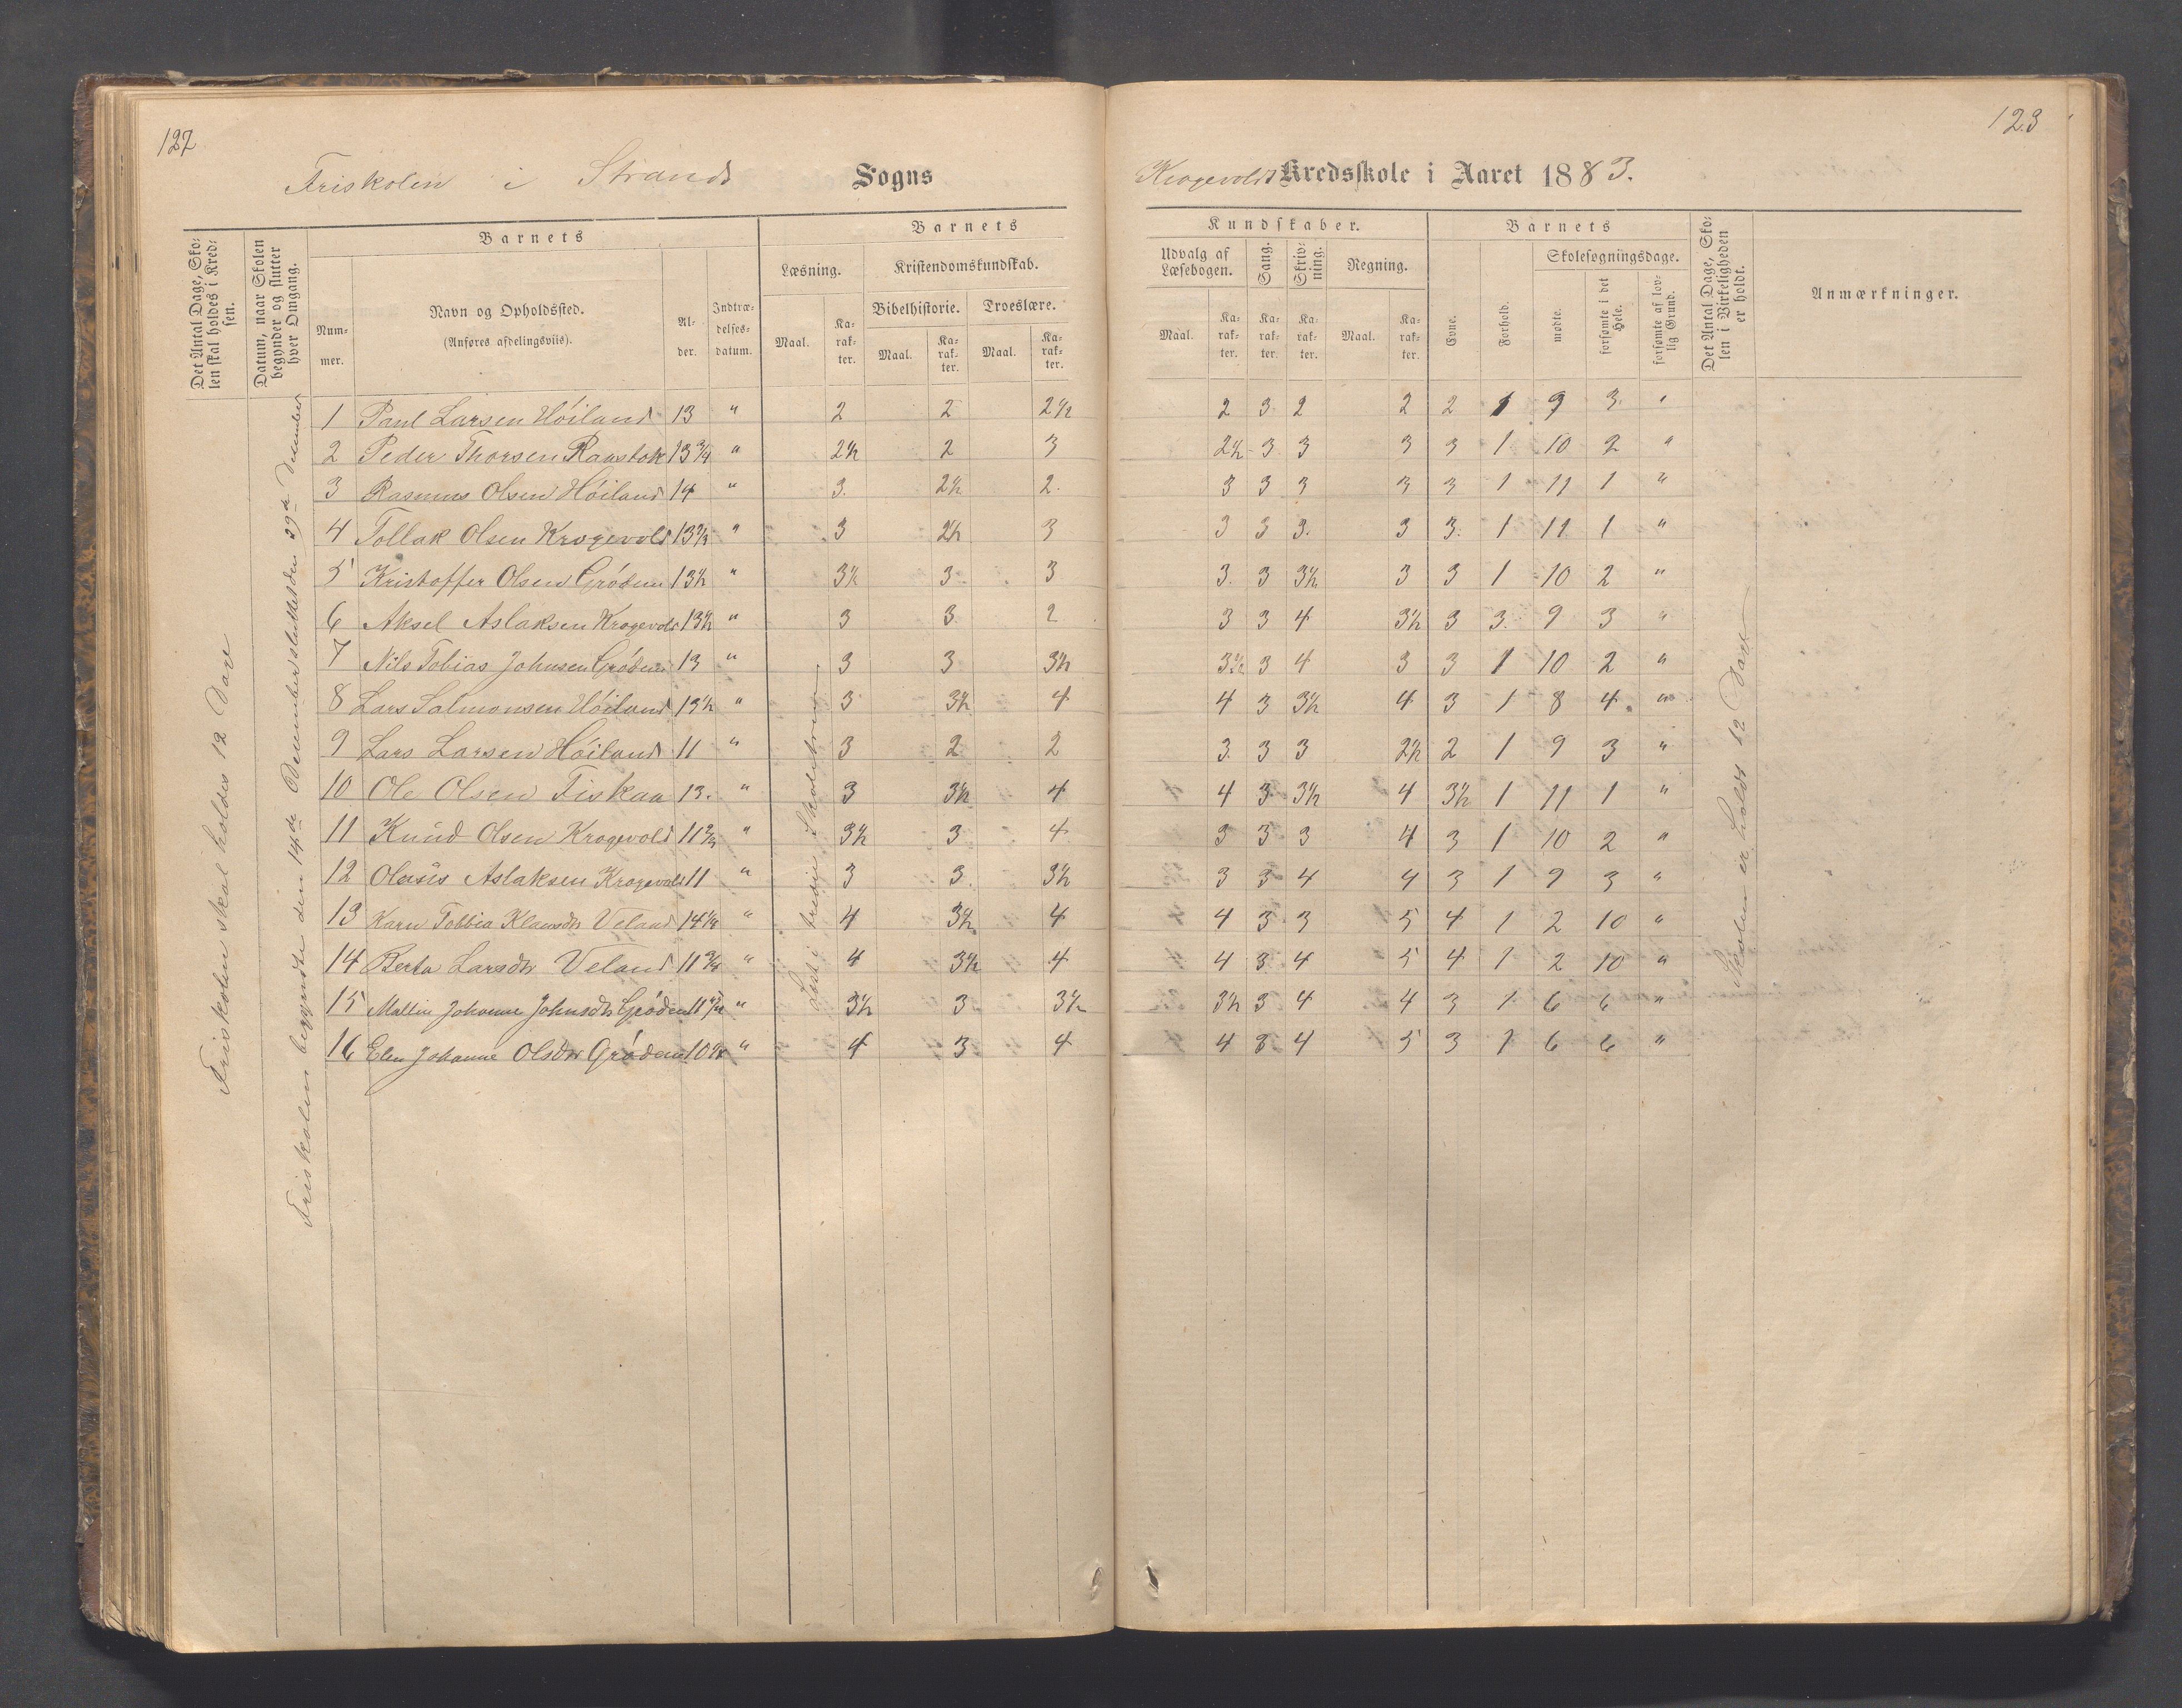 127
123
Friskolen i Strands Sogns
Krogevolds Kredsskole i Aaret 1883.
Det Antal Dage, Skolen skal holdes i Kredsen.
Datum, naar Skolen begynder og slutter hver Omgang.
Barnets
Nummer.
Navn og Opholdssted.
(Anføres afdelingsviis).
Alder.
Indtrædelsesdatum.
Barnets
Læsning.
Kristendomskundskab.
Bibelhistorie.
Troeslære.
Maal. Karakter. Maal. Karakter. Maal. Karakter.
Kundskaber.
Udvalg af Læsebogen.
Sang.
Skrivning.
Regning.
Maal. Karakter. Karakter. Karakter. Maal. Karakter.
Barnets
Evne.
Forhold.
Skolesøgningsdage.
mødte.
forsømte i det Hele.
forsømte af lovlig Grund.
Det Antal Dage, Skolen i Virkeligheden er holdt.
Anmærkninger.
Friskolen skal holdes 12 Dage
Friskolen begyndte den 14de December sluttet den 29de December
Læst i tredje Skoletrin
Skolen er holdt 12 Dage
1 Paul Larsen Höiland 13 " 2 2 2½ 2 3 2 2 2 1 9 3 "
2 Peder Thorsen Ramstok 13¾ " 2½ 2 3 2½ 3 3 3 3 1 10 2 "
3 Rasmus Olsen Höiland 14 " 3 2½ 2 3 3 3 3 3 1 11 1 "
4 Tollak Olsen Krogevold 13⅔ " 3 2½ 3 3 3 3 3 3 1 11 1 "
5 Kristoffer Olsen Grödem 13½ " 3½ 3 3 3 3 3½ 3 3 1 10 2 "
6 Aksel Aslaksen Krogevold 13½ " 3 3 2 3 3 4 3½ 3 3 9 3 "
7 Nils Tobias Johnsen Grödem 13 " 3 3 3½ 3½ 3 4 3 3 1 10 2 "
8 Lars Salmonsen Höiland 13½ " 3 3½ 4 4 3 3½ 4 3 1 8 4 "
9 Lars Larsen Höiland 11 " 3 2 2 3 3 3 2½ 2 1 9 3 "
10 Ole Olsen Fiskaa 13 " 3 3½ 4 4 3 3½ 4 3½ 1 11 1 "
11 Knud Olsen Krogevold 11⅔ " 3½ 3 4 3 3 3 4 3 1 10 2 "
12 Olaus Aslaksen Krogevold 11 " 3 3 3½ 3 3 4 4 3 1 9 3 "
13 Karn Tobbia Klausdtr Veland 14¼ " 4 3½ 4 4 3 3 5 4 1 2 10 "
14 Berta Larsdtr Veland 11¾ " 4 3½ 4 4 3 4 5 4 1 2 10 "
15 Mallin Johanne Johnsdtr Grödem 11 " 3½ 3 3½ 3½ 3 4 4 3 1 6 6 "
16 Elen Johanne Olsdtr Grödem 10 " 4 3 4 4 3 4 5 3 1 6 6 "